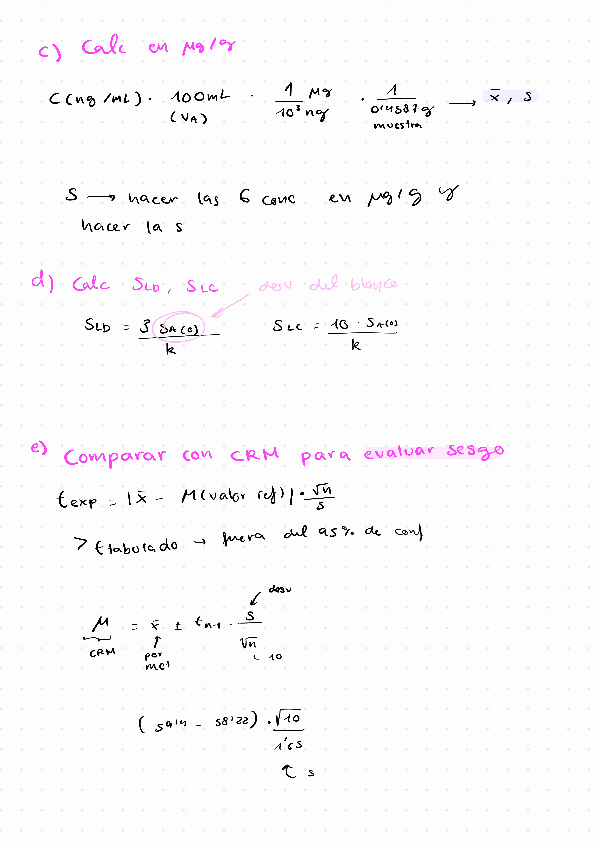 c) Calc en µg/g
C (ng/mL) · 100 mL (VA) · 1 µg / 10³ ng · 1 / 0'4587 g muestra → x̄, s
S → hacer las 6 conc en µg/g y
hacer la s
d) Calc SLD, SLC desv del blanco
SLD = 3 SA(0) / k SLC = 10 · SA(0) / k
e) Comparar con CRM para evaluar sesgo
t exp = |x̄ - M(valor ref)| · √n / s
> t tabulado → fuera del 95% de conf
desv
µ = x̄ ± t n-1 · s / √n
CRM
10
√10
1'65
↑ s